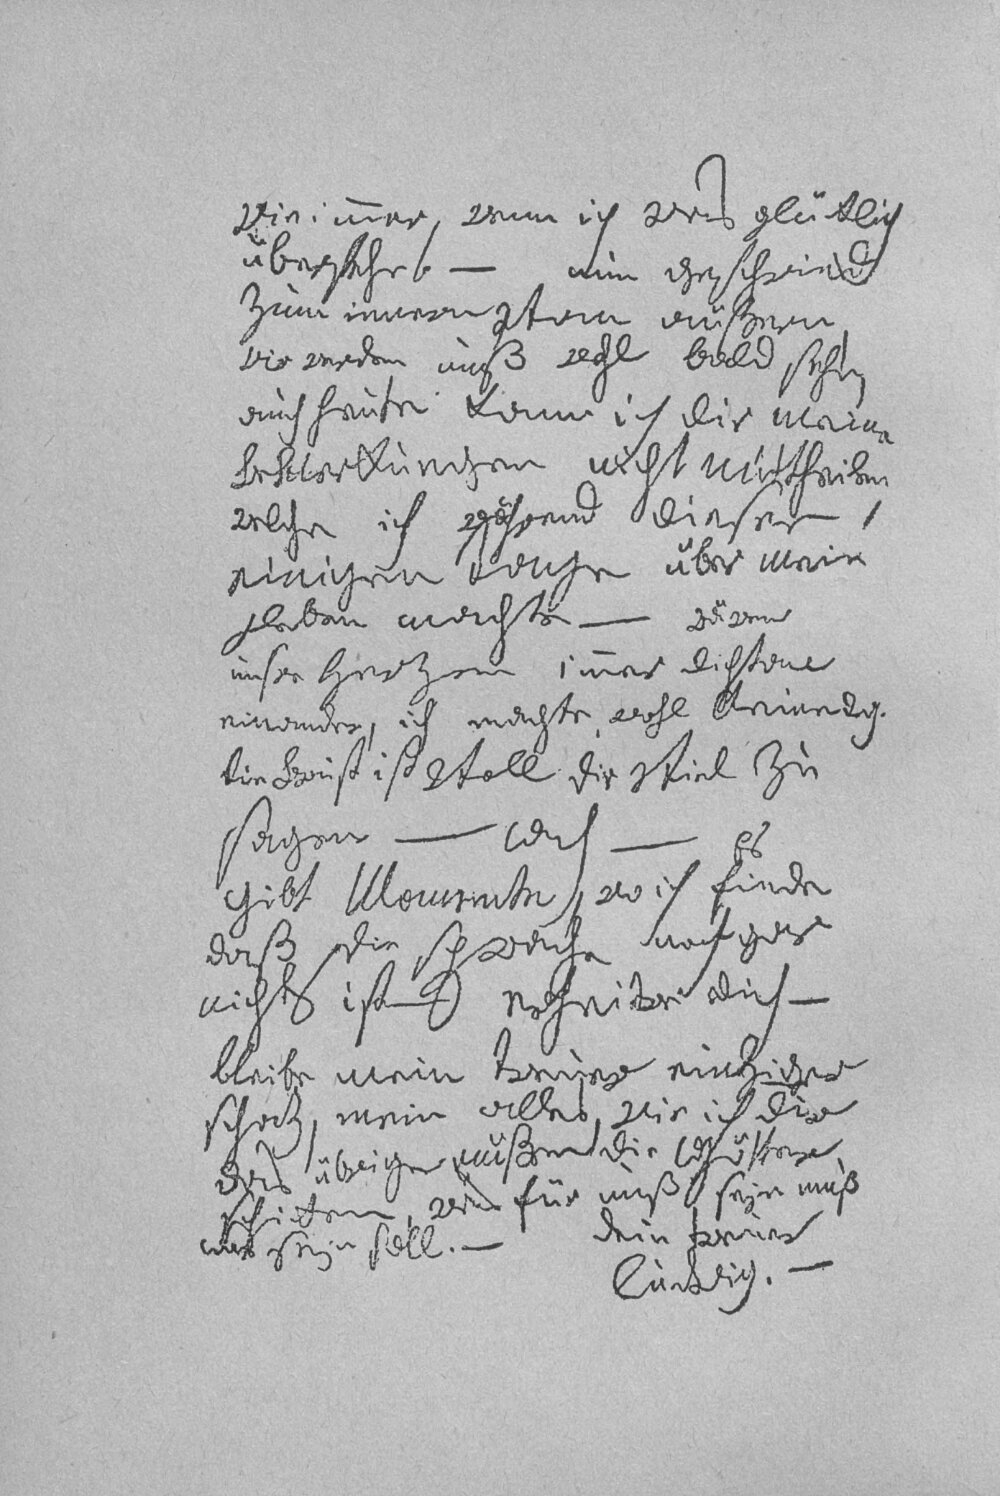 wie immer, wenn ich was glücklich
überstehe — nun geschwind
zum innern vom aüßern,
wir werden unß wohl bald sehn
auch heute kann ich dir meine
Bemerkungen nicht mittheilen
welche ich während dieser
einigen Tage über mein
Leben machte — wären
unsre Herzen immer dicht an
einander, ich machte wohl keine d.g.
die Brust ist voll dir viel zu
sagen — ach — es
gibt Momente, wo ich finde
daß die sprache noch gar
nichts ist — erheitre dich —
bleibe mein treuer einziger
schatz, mein alles, wie ich dir
das übrige müßen die Götter
schicken, was für unß sejn muß
und sejn soll. —
dein treuer
ludwig. —